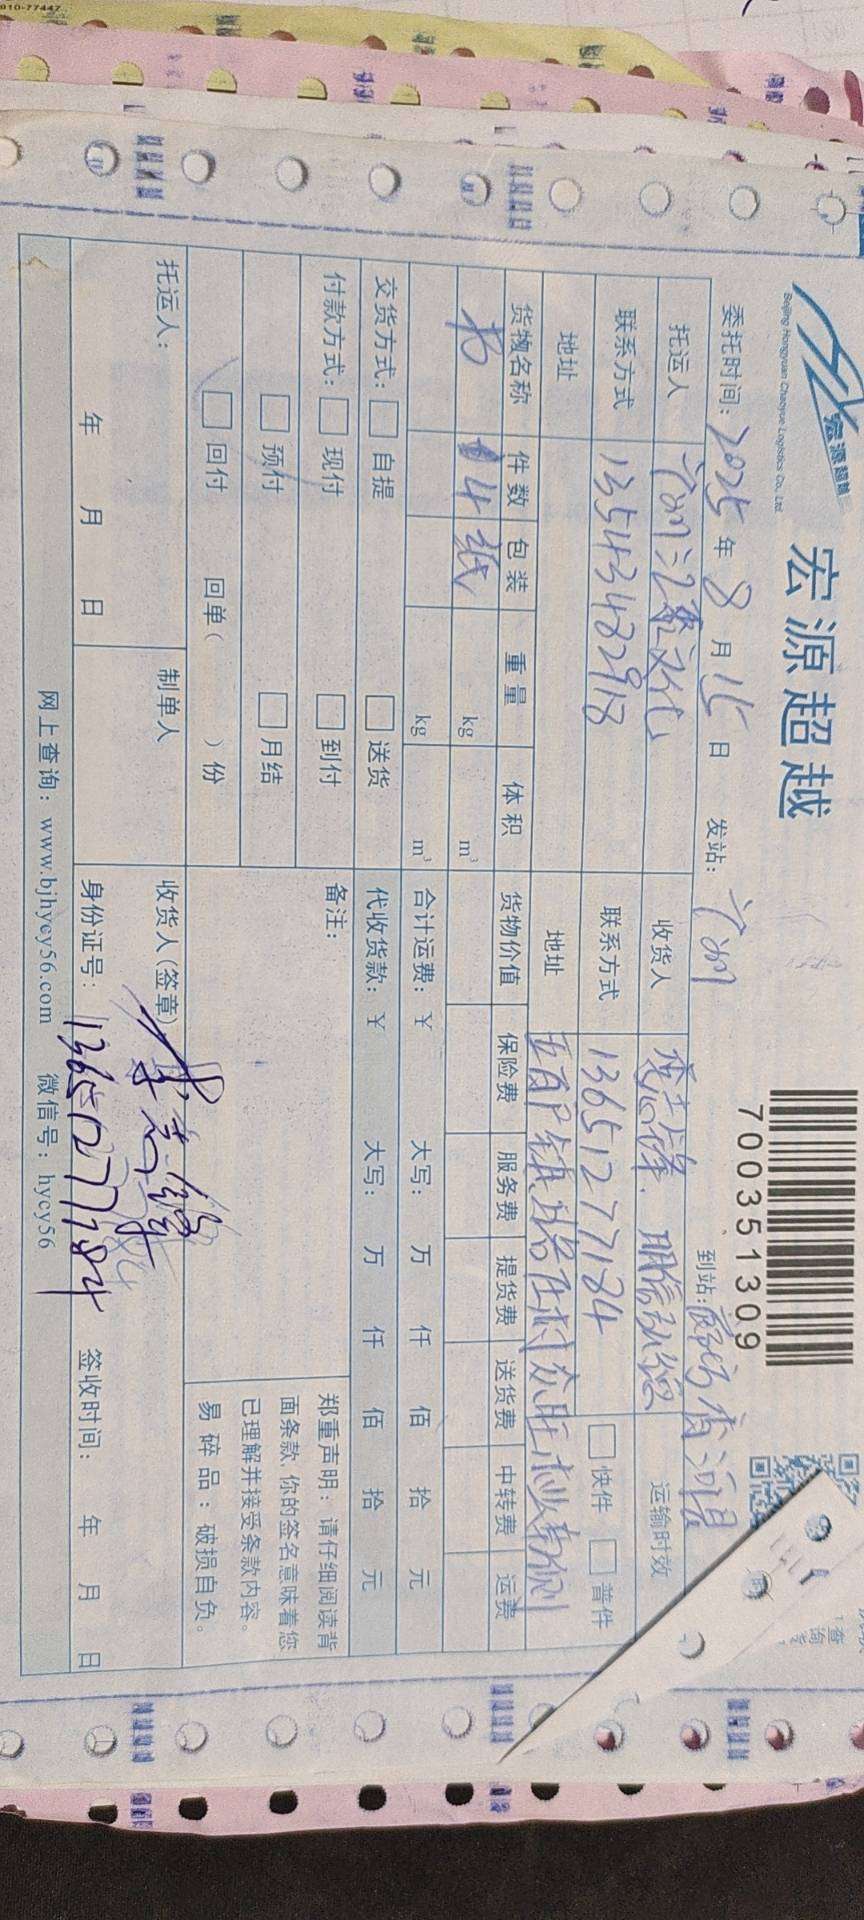 宏源超越
Beijing Hongyuan Chaoyue Logistics Co., Ltd.
宏源超越
7 0 0 3 5 1 3 0 9
委托时间：2025 年 8 月 15 日 发站：广州 到站：廊坊香河县
托运人 广州汇 文化 收货人 李志锋．明信 运输时效
联系方式 13543482918 联系方式 13651277184 快件 普件
地址 地址 五百户镇 村众旺 业东侧
货物名称 件数 包装 重量 体积 货物价值 保险费 服务费 提货费 送货费 中转费 运费
书 14 纸 kg m³
kg m³ 合计运费：¥ 大写： 万 仟 佰 拾 元
交货方式： 自提 送货 代收货款：¥ 大写： 万 仟 佰 拾 元
付款方式： 现付 到付 备注：
预付 月结
回付 回单（ ）份
郑重声明：请仔细阅读背
面条款，你的签名意味着您
已理解并接受条款内容。
易碎品：破损自负。
托运人： 制单人 收货人（签章） 李志锋
年 月 日 身份证号：13651277184 签收时间： 年 月 日
网上查询：www.bjhycy56.com 微信号：hycy56